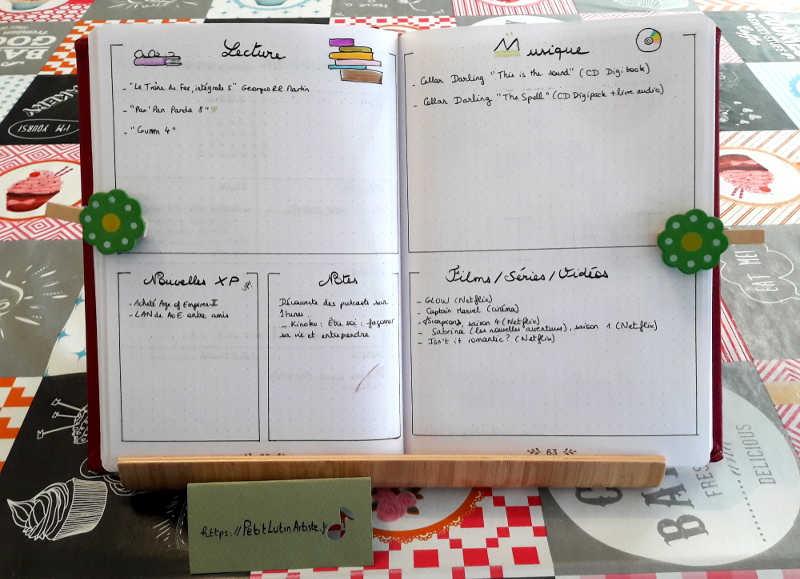 Lecture
- "Le Trône de Fer, intégrale 5" Georges RR Martin
- "Pan' Pan Panda 8"
- "Gunnm 4"
Musique
- Cellar Darling "This is the sound" (CD Digibook)
- Cellar Darling "The Spell" (CD Digipack + live audio)
Nouvelles XP
- Acheté Age of Empires II
- LAN de AoE entre amis
Notes
Découverte des podcasts sur
Ithures.
... Kinoko : Être soi : façonner
sa vie et entreprendre
Films/Séries/Vidéos
- GLOW (Netflix)
- Captain Marvel (cinéma)
- Scorpions, saison 4 (Netflix)
- Sabrina (les nouvelles aventures), saison 1 (Netflix)
- Isn't it romantic? (Netflix)
63
https://PetitLutinArtiste.fr
BAKERY
I'M YOURS!
EAT ME!
FRESH
DELICIOUS